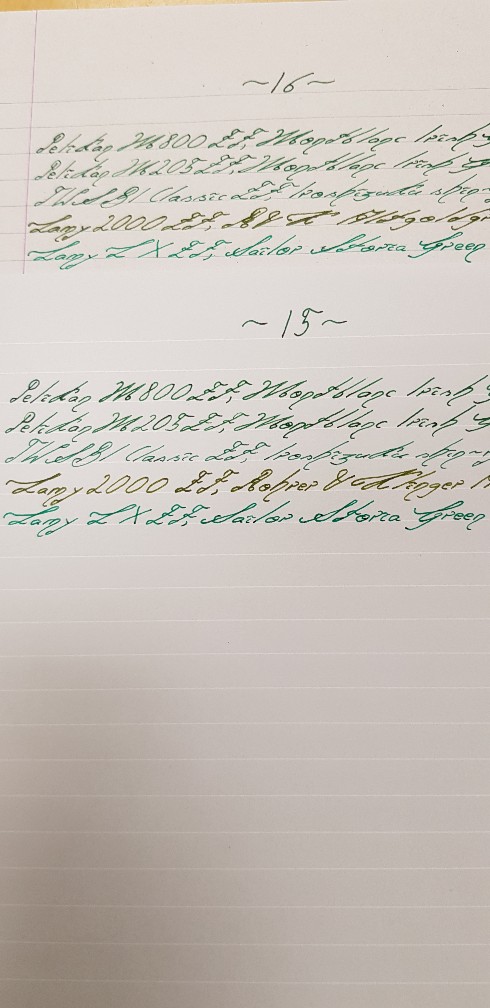 ~16~
Pelikan M800 EF, Montblanc Irish
Pelikan M205 EF, Montblanc Irish
TWSBI Classic EF, Iroshizuku shin-
Lamy 2000 EF, R & K Altgoldgr
Lamy LX EF, Sailor Storia Green
~15~
Pelikan M800 EF, Montblanc Irish
Pelikan M205 EF, Montblanc Irish
TWSBI Classic EF, Iroshizuku shin-r
Lamy 2000 EF, Rohrer & Klinger
Lamy LX EF, Sailor Storia Green